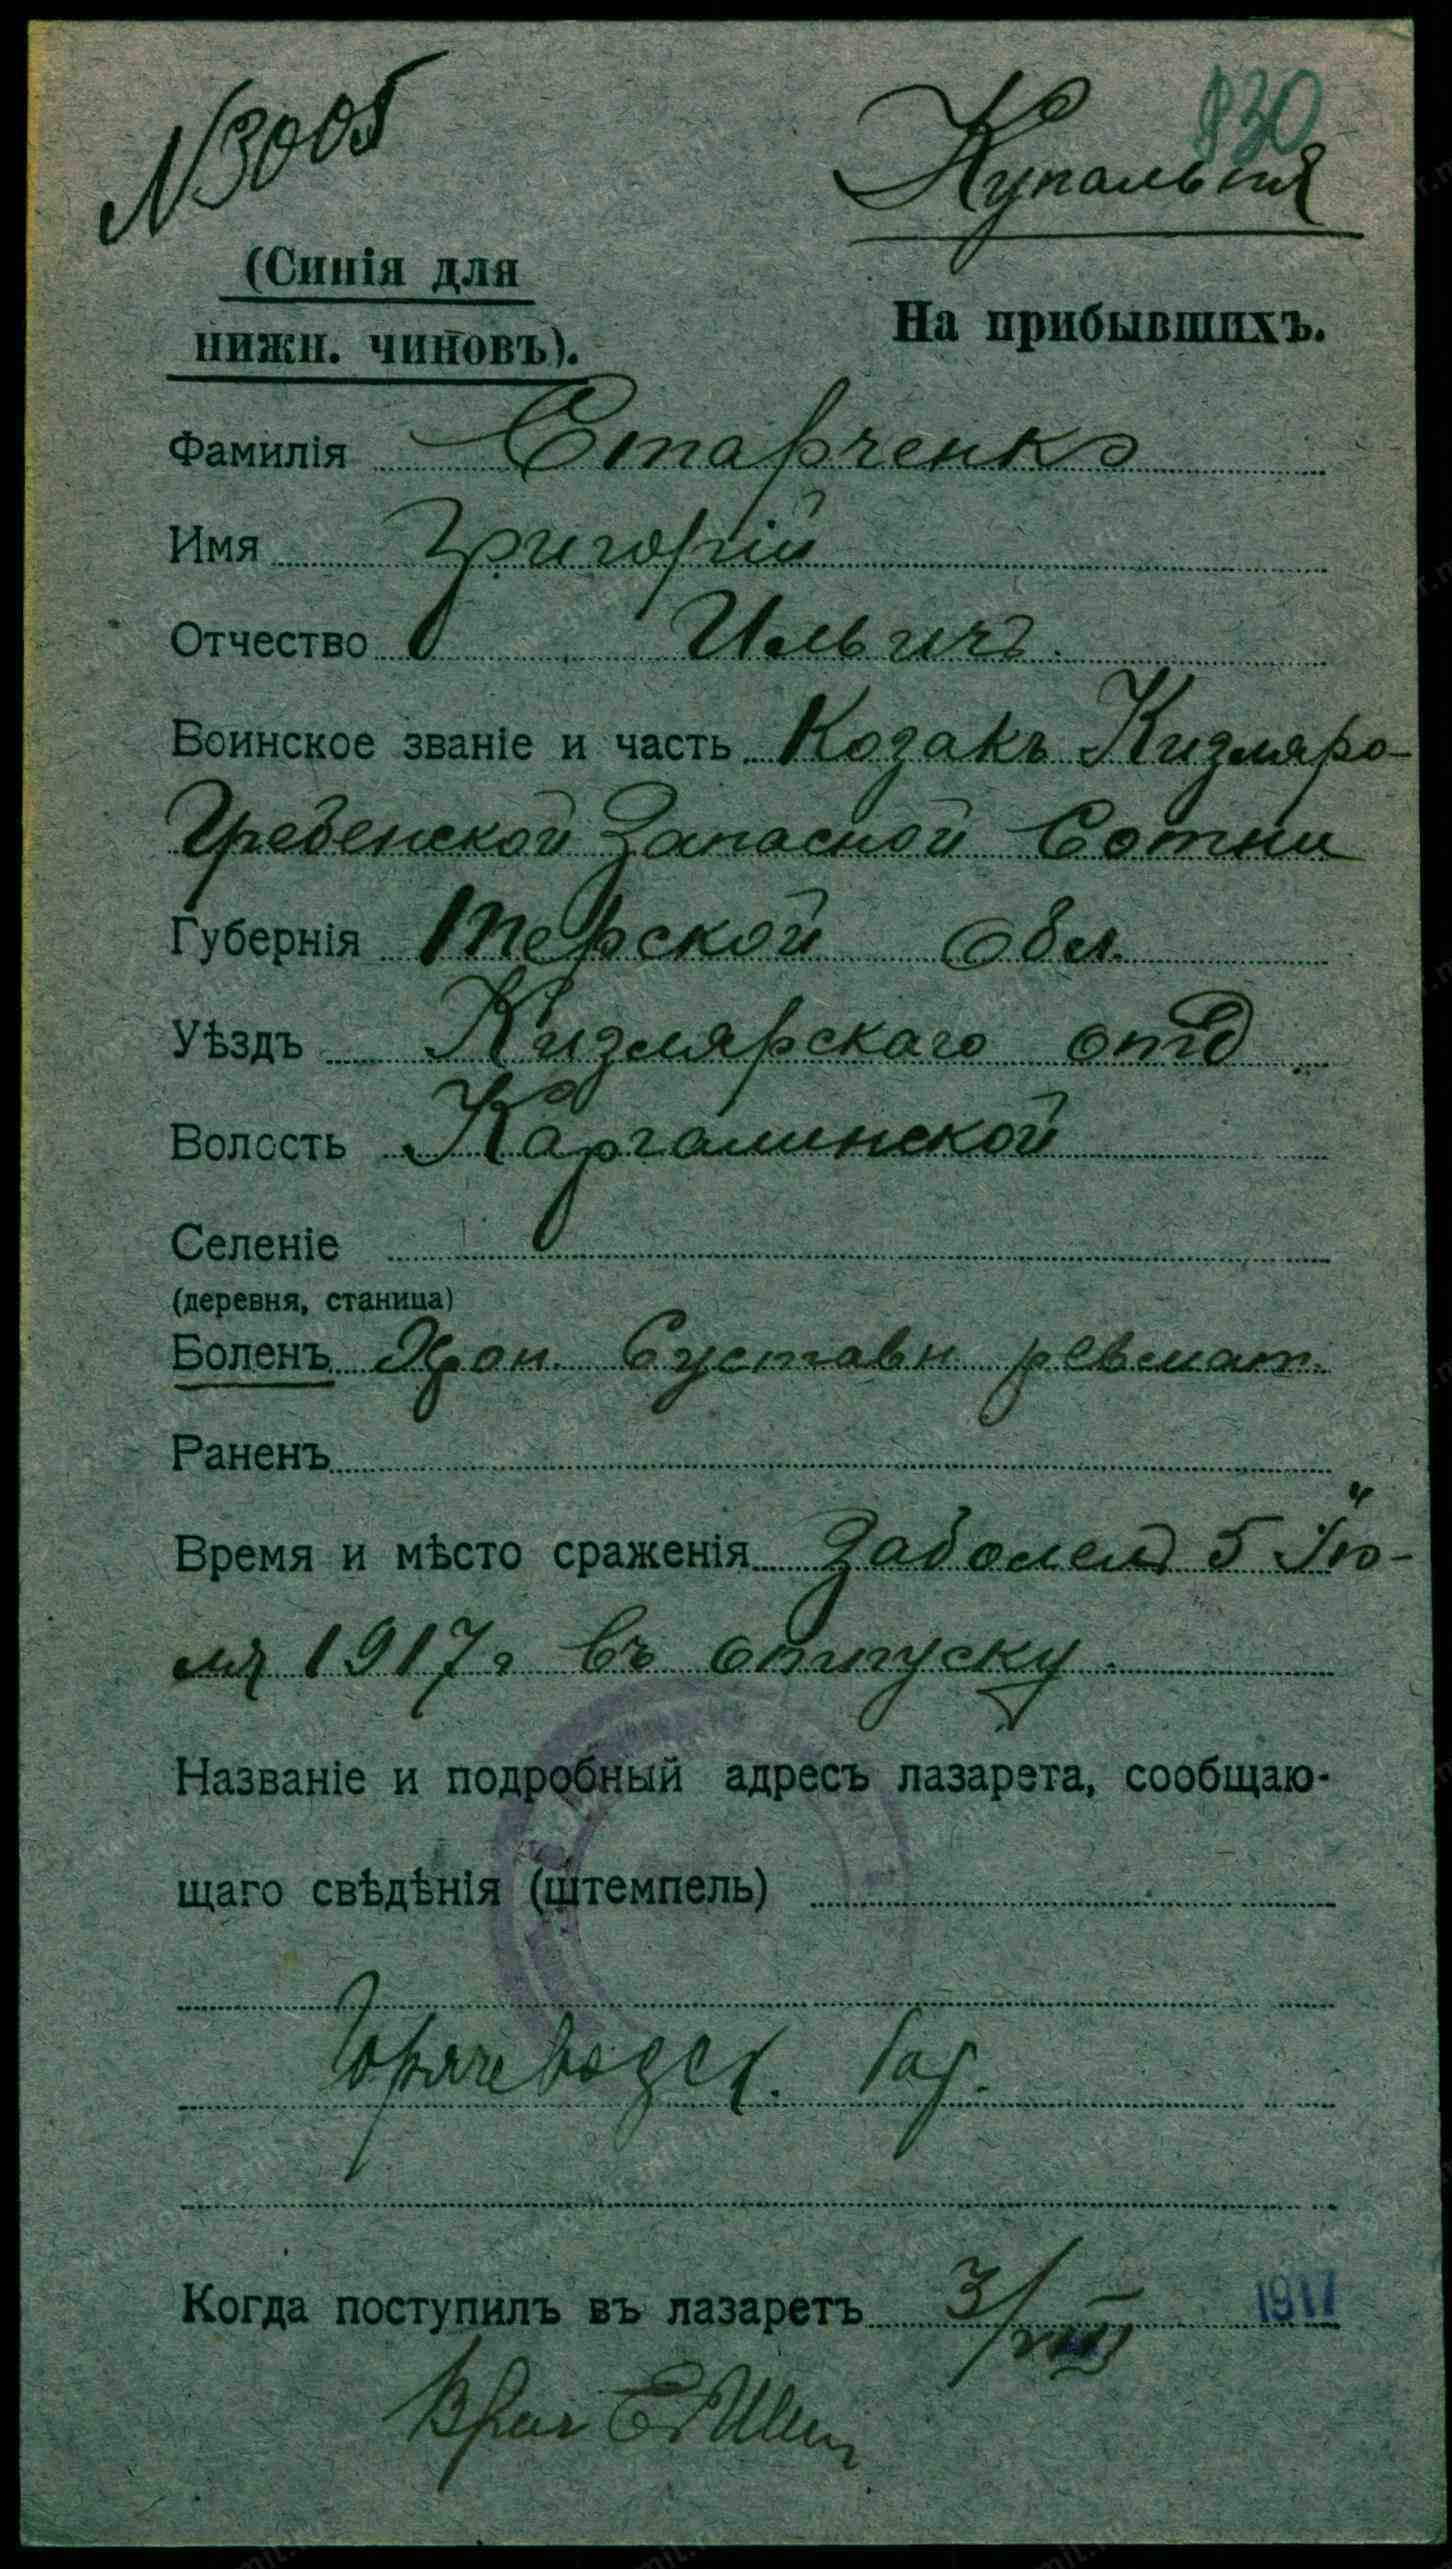 №3005
930
Купальня
(Синія для
нижн. чиновъ).
На прибывшихъ.
Фамилія Старченко
Имя Григорій
Отчество Ильичъ.
Воинское званіе и часть Козакъ Кизляро-
Гребенской Запасной Сотни
Губернія Терской Обл.
Уѣздъ Кизлярскаго отд
Волость Каргалинской
Селеніе
(деревня, станица)
Боленъ Хрон. Суставн. ревмат.
Раненъ
Время и мѣсто сраженія Заболелъ 5 Ію-
ля 1917 г въ отпуску.
Названіе и подробный адресъ лазарета, сообщаю-
щаго свѣдѣнія (штемпель)
Горячеводск.
Когда поступилъ въ лазаретъ 3/VIII 1917
Врач